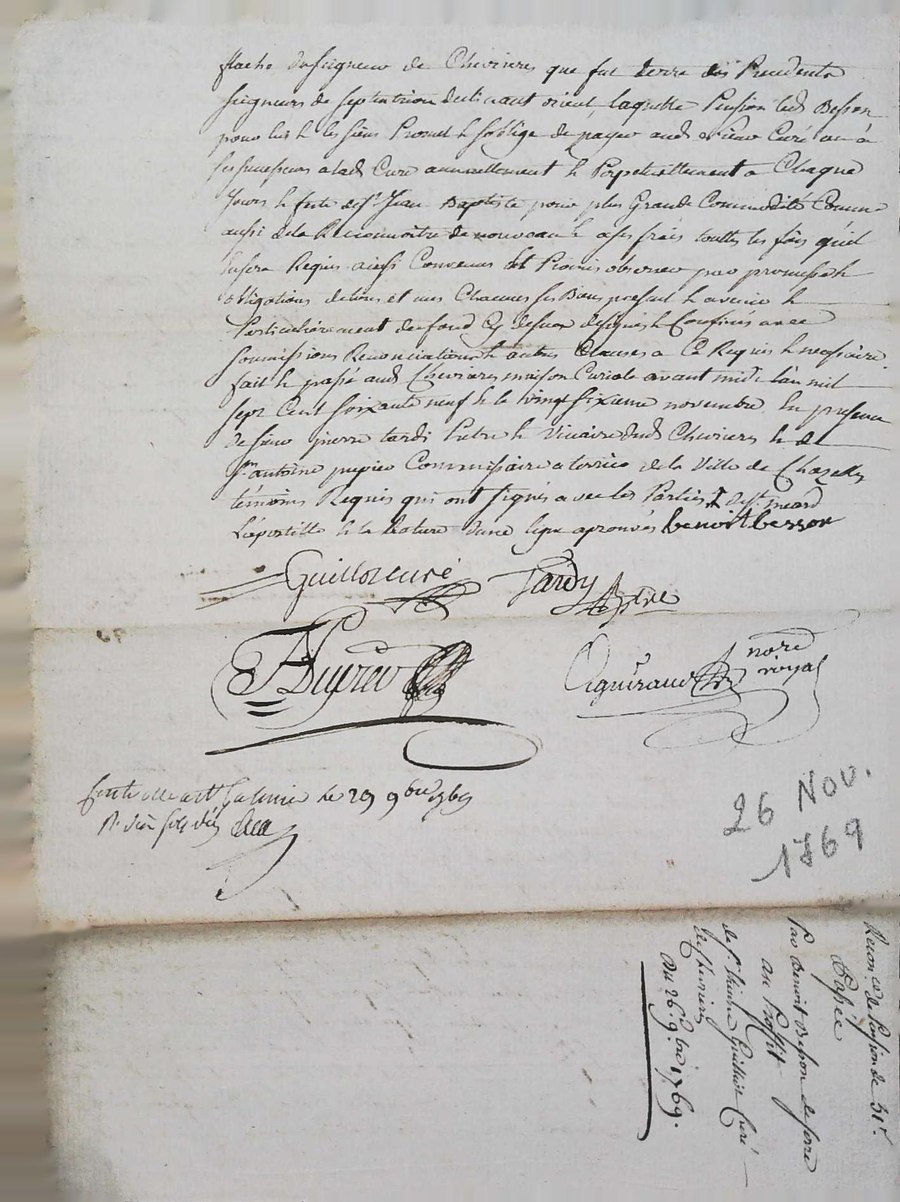 du Seigneur de Chevrieres que fut terre des Precedents
Seigneurs de Septentrion declinant orient, laquelle Pension led Besson
pour lui & les Siens Promet & s'oblige de payer aud Sieur Curé ou à
ses successeurs a lad Cure annuellement & Perpetuellement a Chaque
Jours & feste de St Jean Baptiste pour plus Grande Commodité Comme
aussi de la Reconnoitre de nouveau & a ses frais touttes les fois qu'il
en sera Requis ainsi Convenus & Promis observer par promesses &
obligations de tous et uns Chacuns ses Biens present & avenir &
Particulièrement du fond Cy dessus designés & Confinés avec
Soumissions Renonciations & autres Clauses a Ce Requis & necessaire
fait & passé aud Chevrieres maison Curiale avant midi L'an mil
sept Cent Soixante neuf & le vingt sixieme novembre En presence
de Sieur pierre tardi Pretre & Vicaire dud Chevrieres & de
Sr antoine pupier Commissaire a terrier de la Ville de Chazelles
temoins Requis qui ont signés avec les Parties
L'apostille & la Rature d'une ligne aprouvés benoit besson
Guillot curé Tardy ptre
A Pupier Aguiraud nore royal
le 29 9bre 1769
26 NOV.
1769
Reconce de Pension de
Passée
Par Benoit Besson
au Proffit
de Sr Guillot Curé
de Chevrieres
Du 26e 9bre 1769.